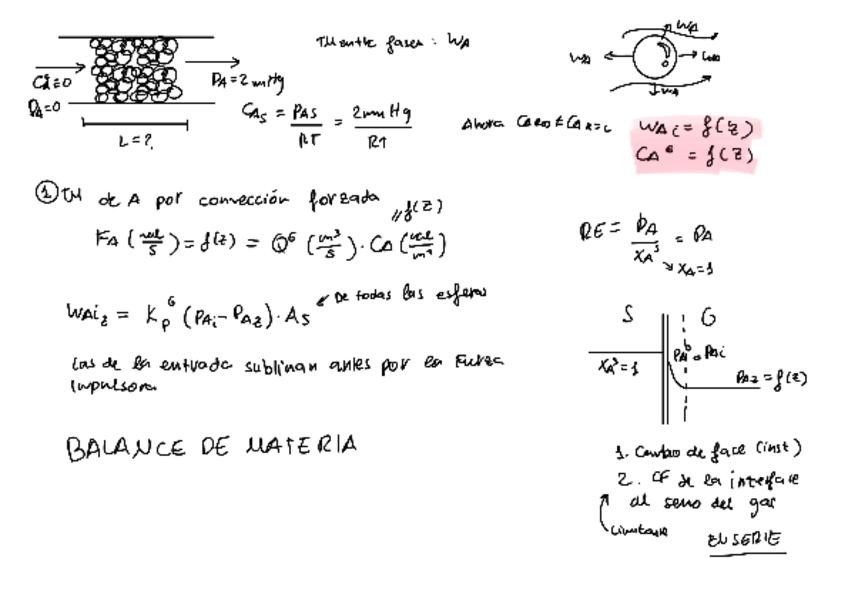 TM entre fases : WA
WA
WA
WA
WA
CA=0
PA=0
PA = 2 mmHg
L = ?
CAS = PAS / RT = 2mm Hg / RT
Ahora CA z=0 ≠ CA z=L
WAi = f(z)
CA^G = f(z)
① TM de A por convección forzada
// f(z)
FA (mol/s) = f(z) = Q^G (m³/s) · CA (mol/m³)
RE = PA / XA^S = PA
↘ XA=1
WAi z = Kp^G (PAi - PAz) · AS
↙ De todas las esferas
Las de la entrada subliman antes por la Fuerza
Impulsora
S
G
XA^S = 1
PA^G = PAi
PAz = f(z)
BALANCE DE MATERIA
1. Cambio de fase (inst)
2. CF de la interfase
al seno del gas
Limitante
EN SERIE